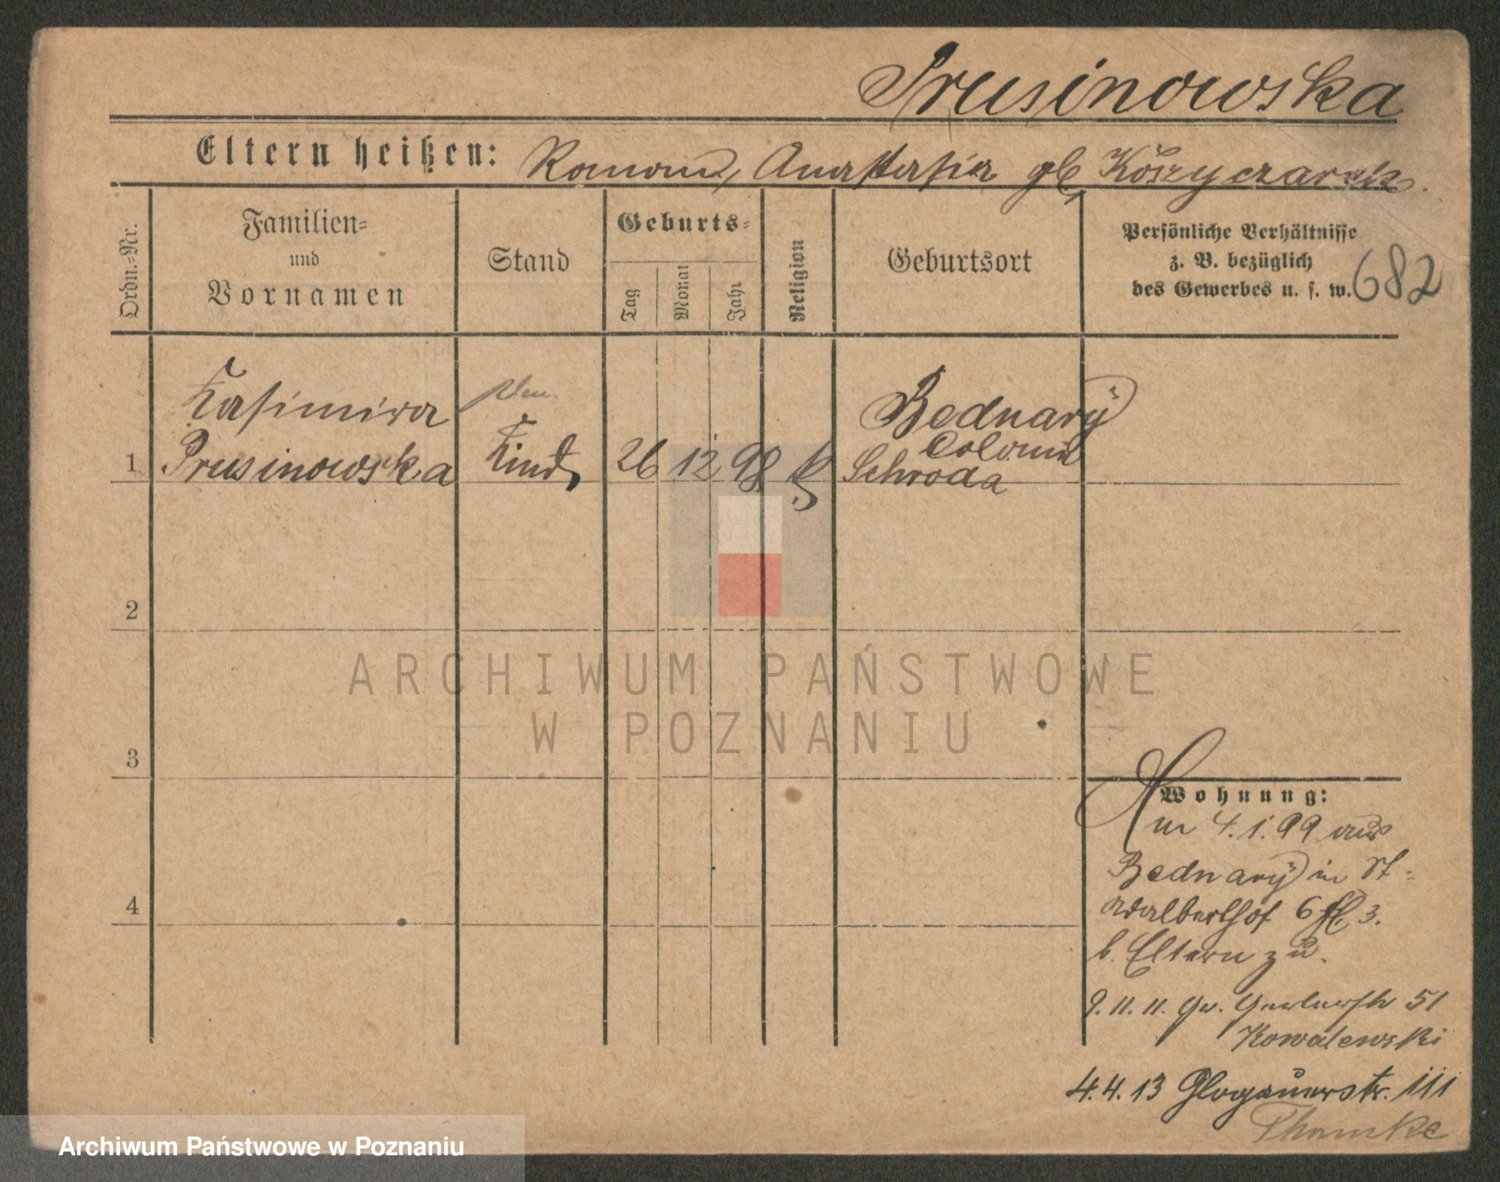 Prusinowska
Eltern heißen: Roman, Anastasia gb, Koszyczarek.
Ordn.-Nr.
Familien- und Vornamen
Stand
Geburts-
Tag
Monat
Jahr
Religion
Geburtsort
Persönliche Verhältnisse
z. B. bezüglich
des Gewerbes u. s. w.
682
Kasimira
Bednarÿ
Colonie
1 Prusinowska Kind 26 12 98 k Schroda
2
ARCHIWUM PAŃSTWOWE
W POZNANIU
3
Wohnung:
Am 4.1.99 aus
Bednarÿ in St-
Adalberthof 6 3.
b. Eltern zu.
4
9.11.11. Gr. Gerberstr 51
Kowalewski
4.4.13 Glogauerstr. 111
Thomke
Archiwum Państwowe w Poznaniu